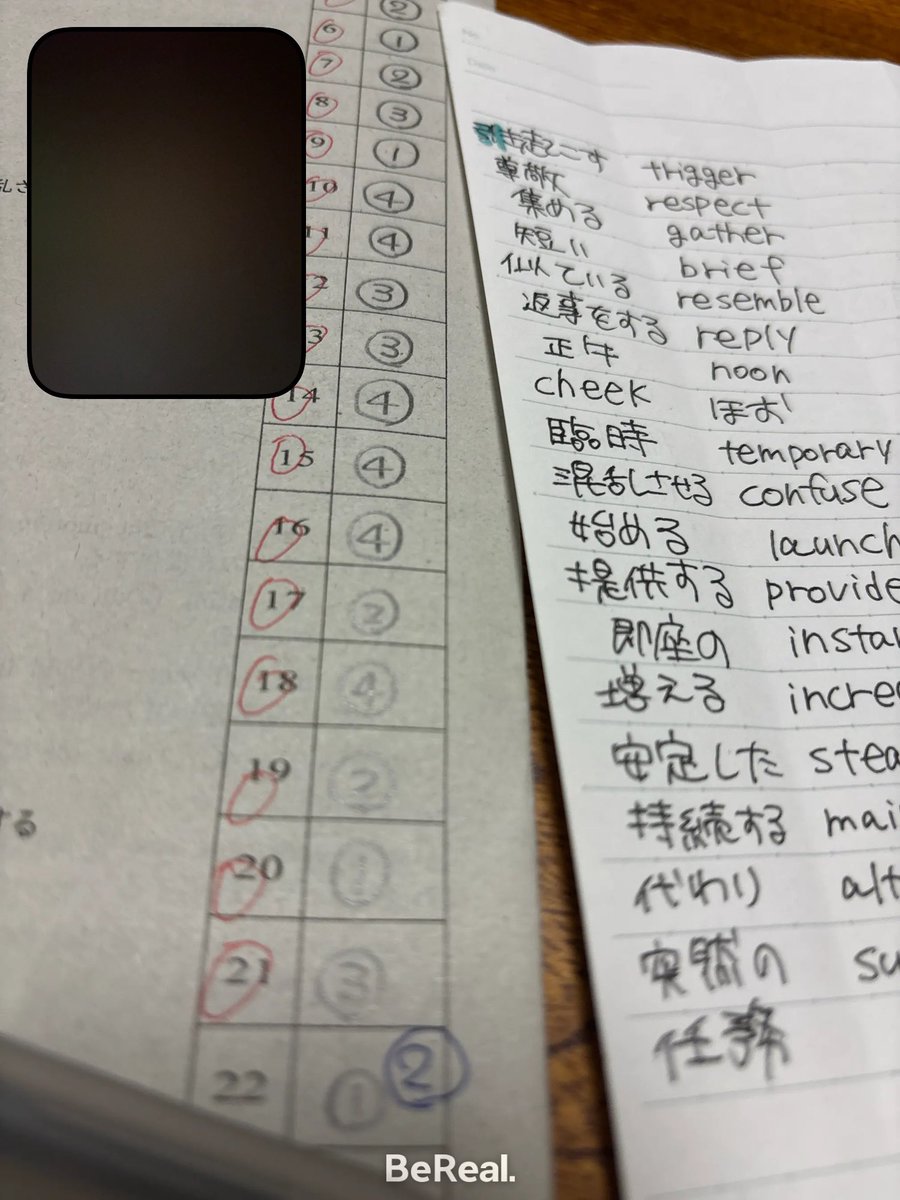 ②
6 ①
7 ②
8 ③
9 ①
10 ④
11 ④
2 ③
3 ③
14 ④
15 ④
16 ④
17 ②
18 ④
19 ②
20 ①
21 ③
22 ① ②
乱さ
する
No.
Date
引き起こす trigger
尊敬 respect
集める gather
短い brief
似ている resemble
返事をする reply
正午 noon
cheek ほお
臨時 temporary
混乱させる confuse
始める launch
提供する provide
即座の instan
増える incre
安定した stea
持続する mai
代わり alt
実質的 su
任務
BeReal.